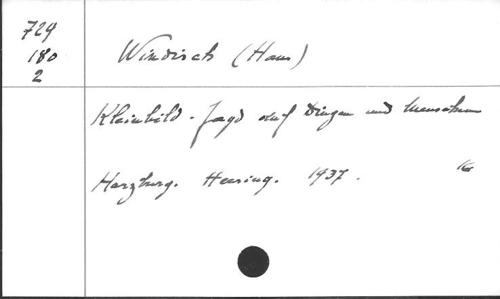 729
180
2
Windisch (Hans)
Kleinbild-Jagd auf Dingen und Menschen
Harzburg. Heering. 1937.